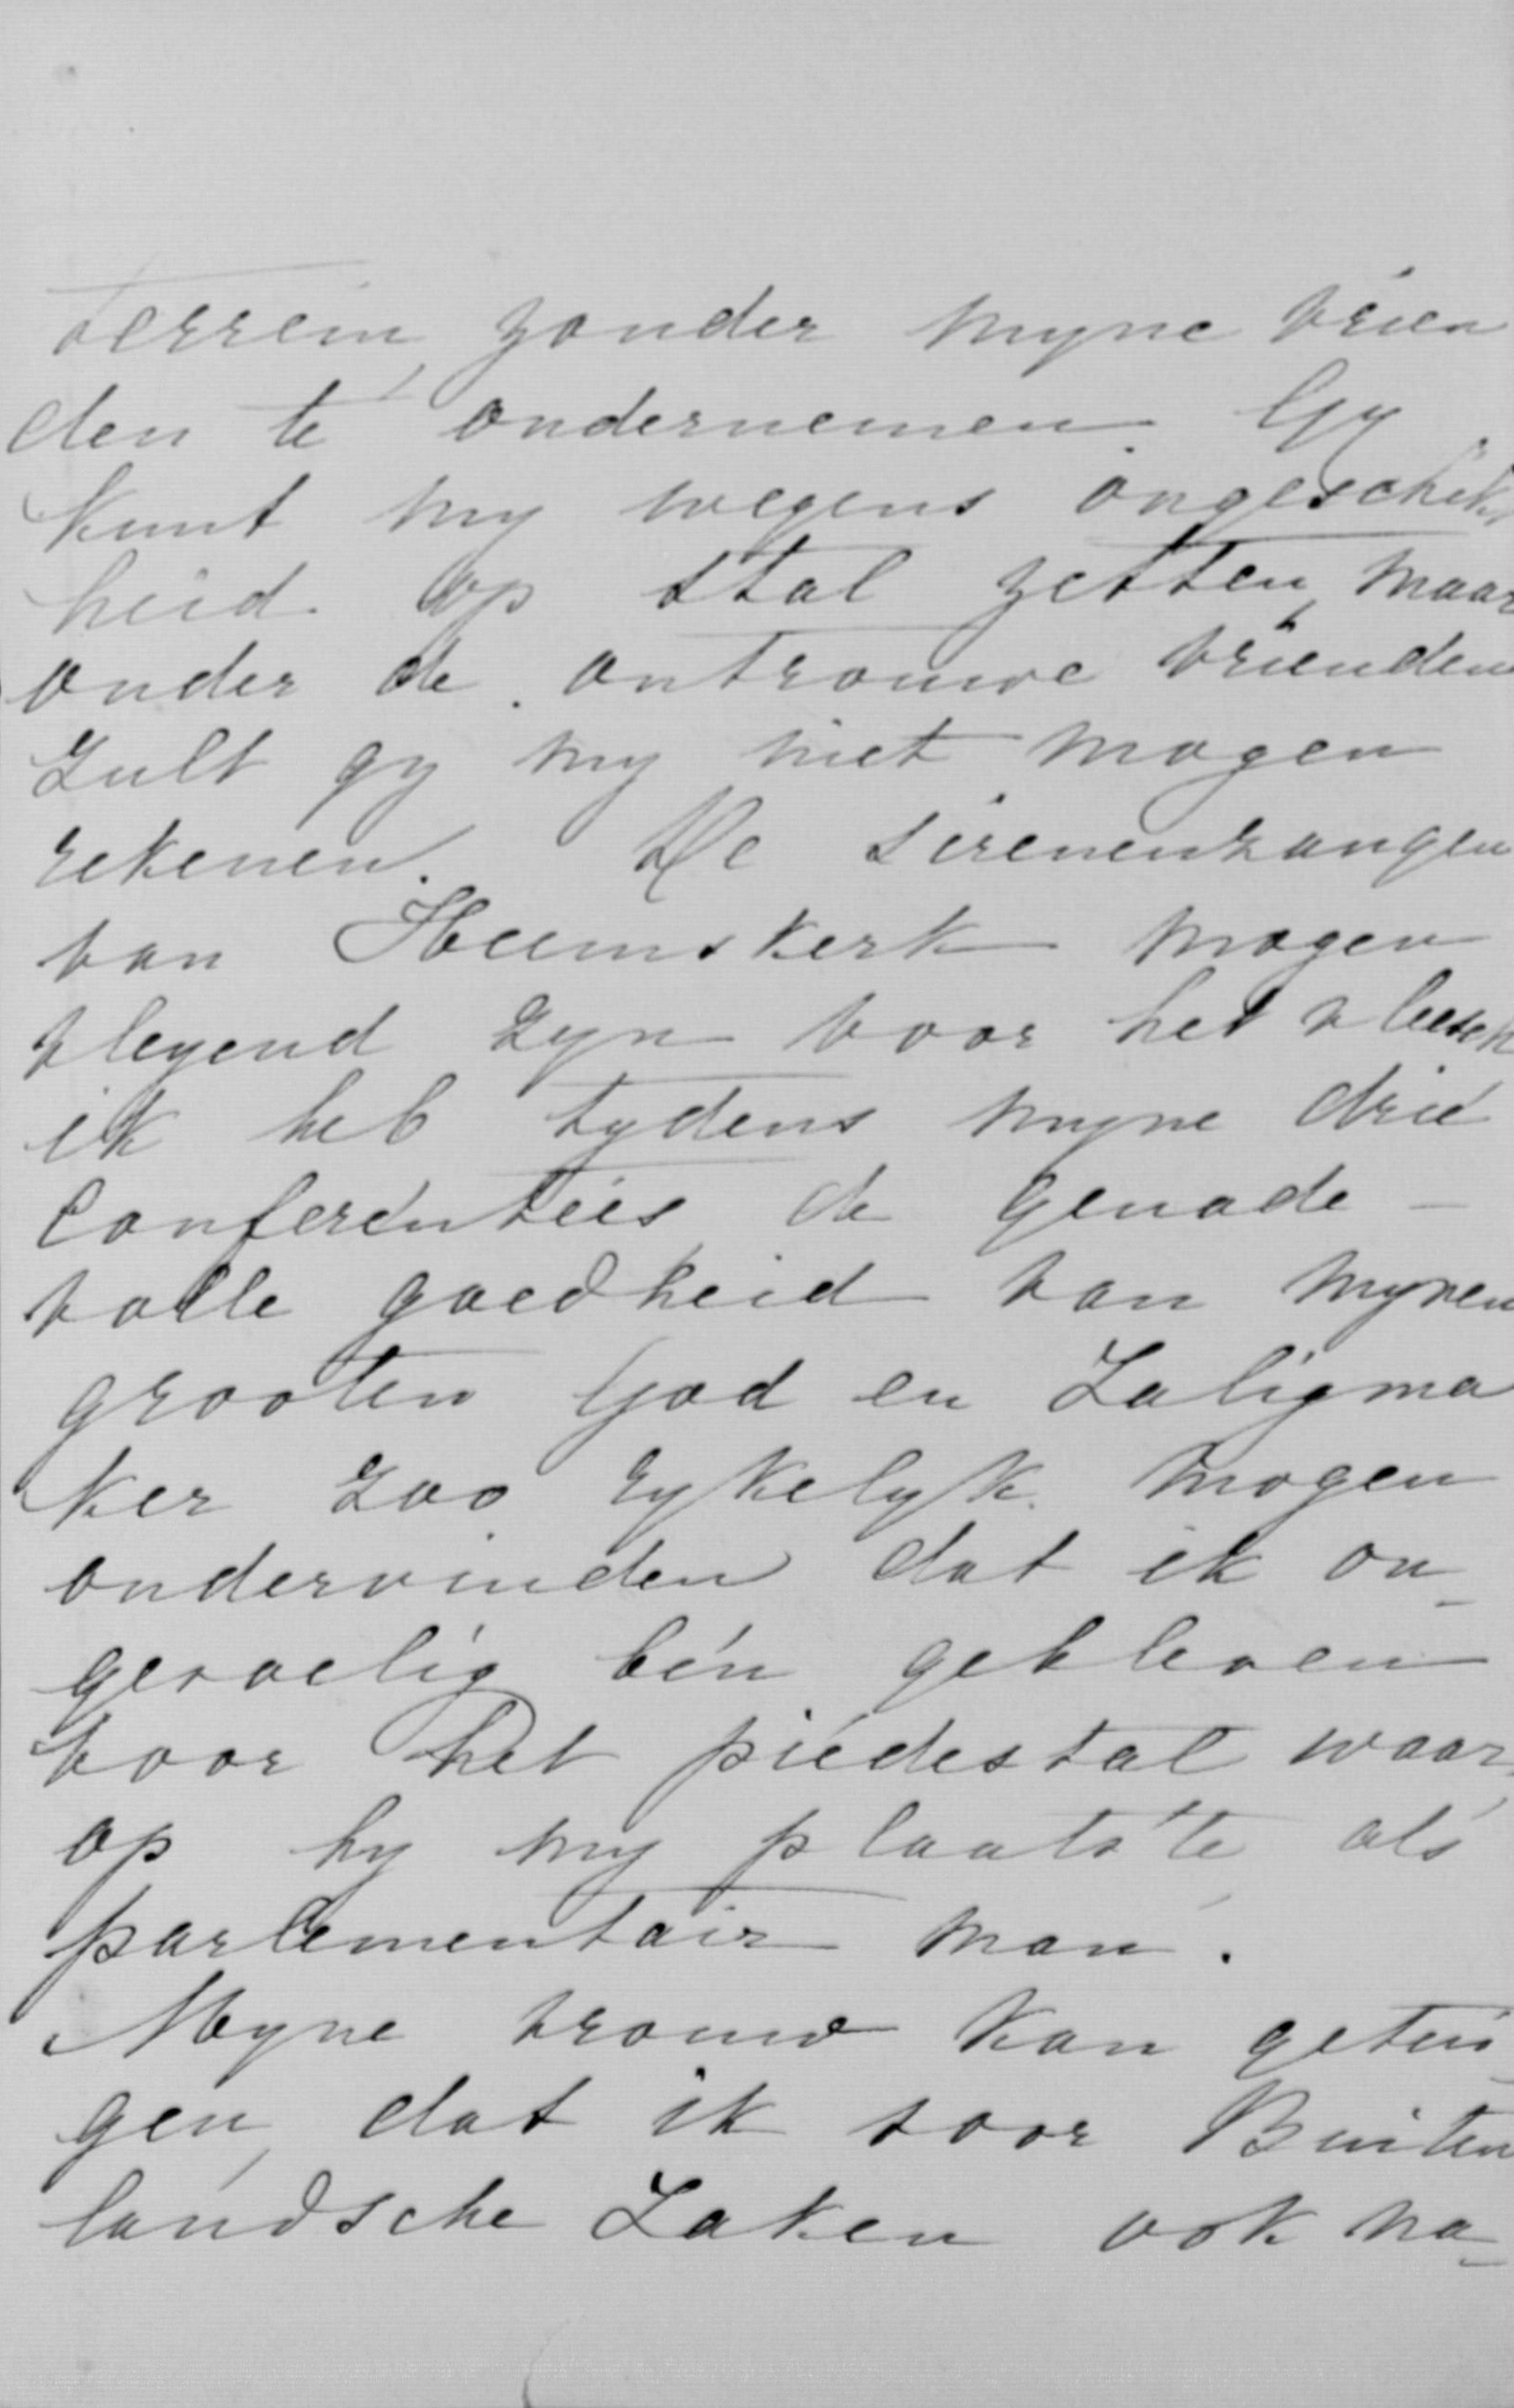 terrein, zonder myne vrien
den te ondernemen. Gy
kunt my wegens ongeschikt
heid op stal zetten, maar
onder de ontrouwe vrienden
zult gy my niet mogen
rekenen. De sirenenzangen
van Heemskerk mogen
vleyend zyn voor het vleesch
ik heb tydens myne drie
conferenties de genade-
volle goedheid van mynen
grooten God en Zaligma
ker zoo rykelyk mogen
ondervinden dat ik on-
gevoelig ben gebleven
voor het piedestal waar-
op hy my plaatste als
parlementair man.
Myne vrouw kan getui-
gen, dat ik voor Buiten
landsche Zaken ook na-